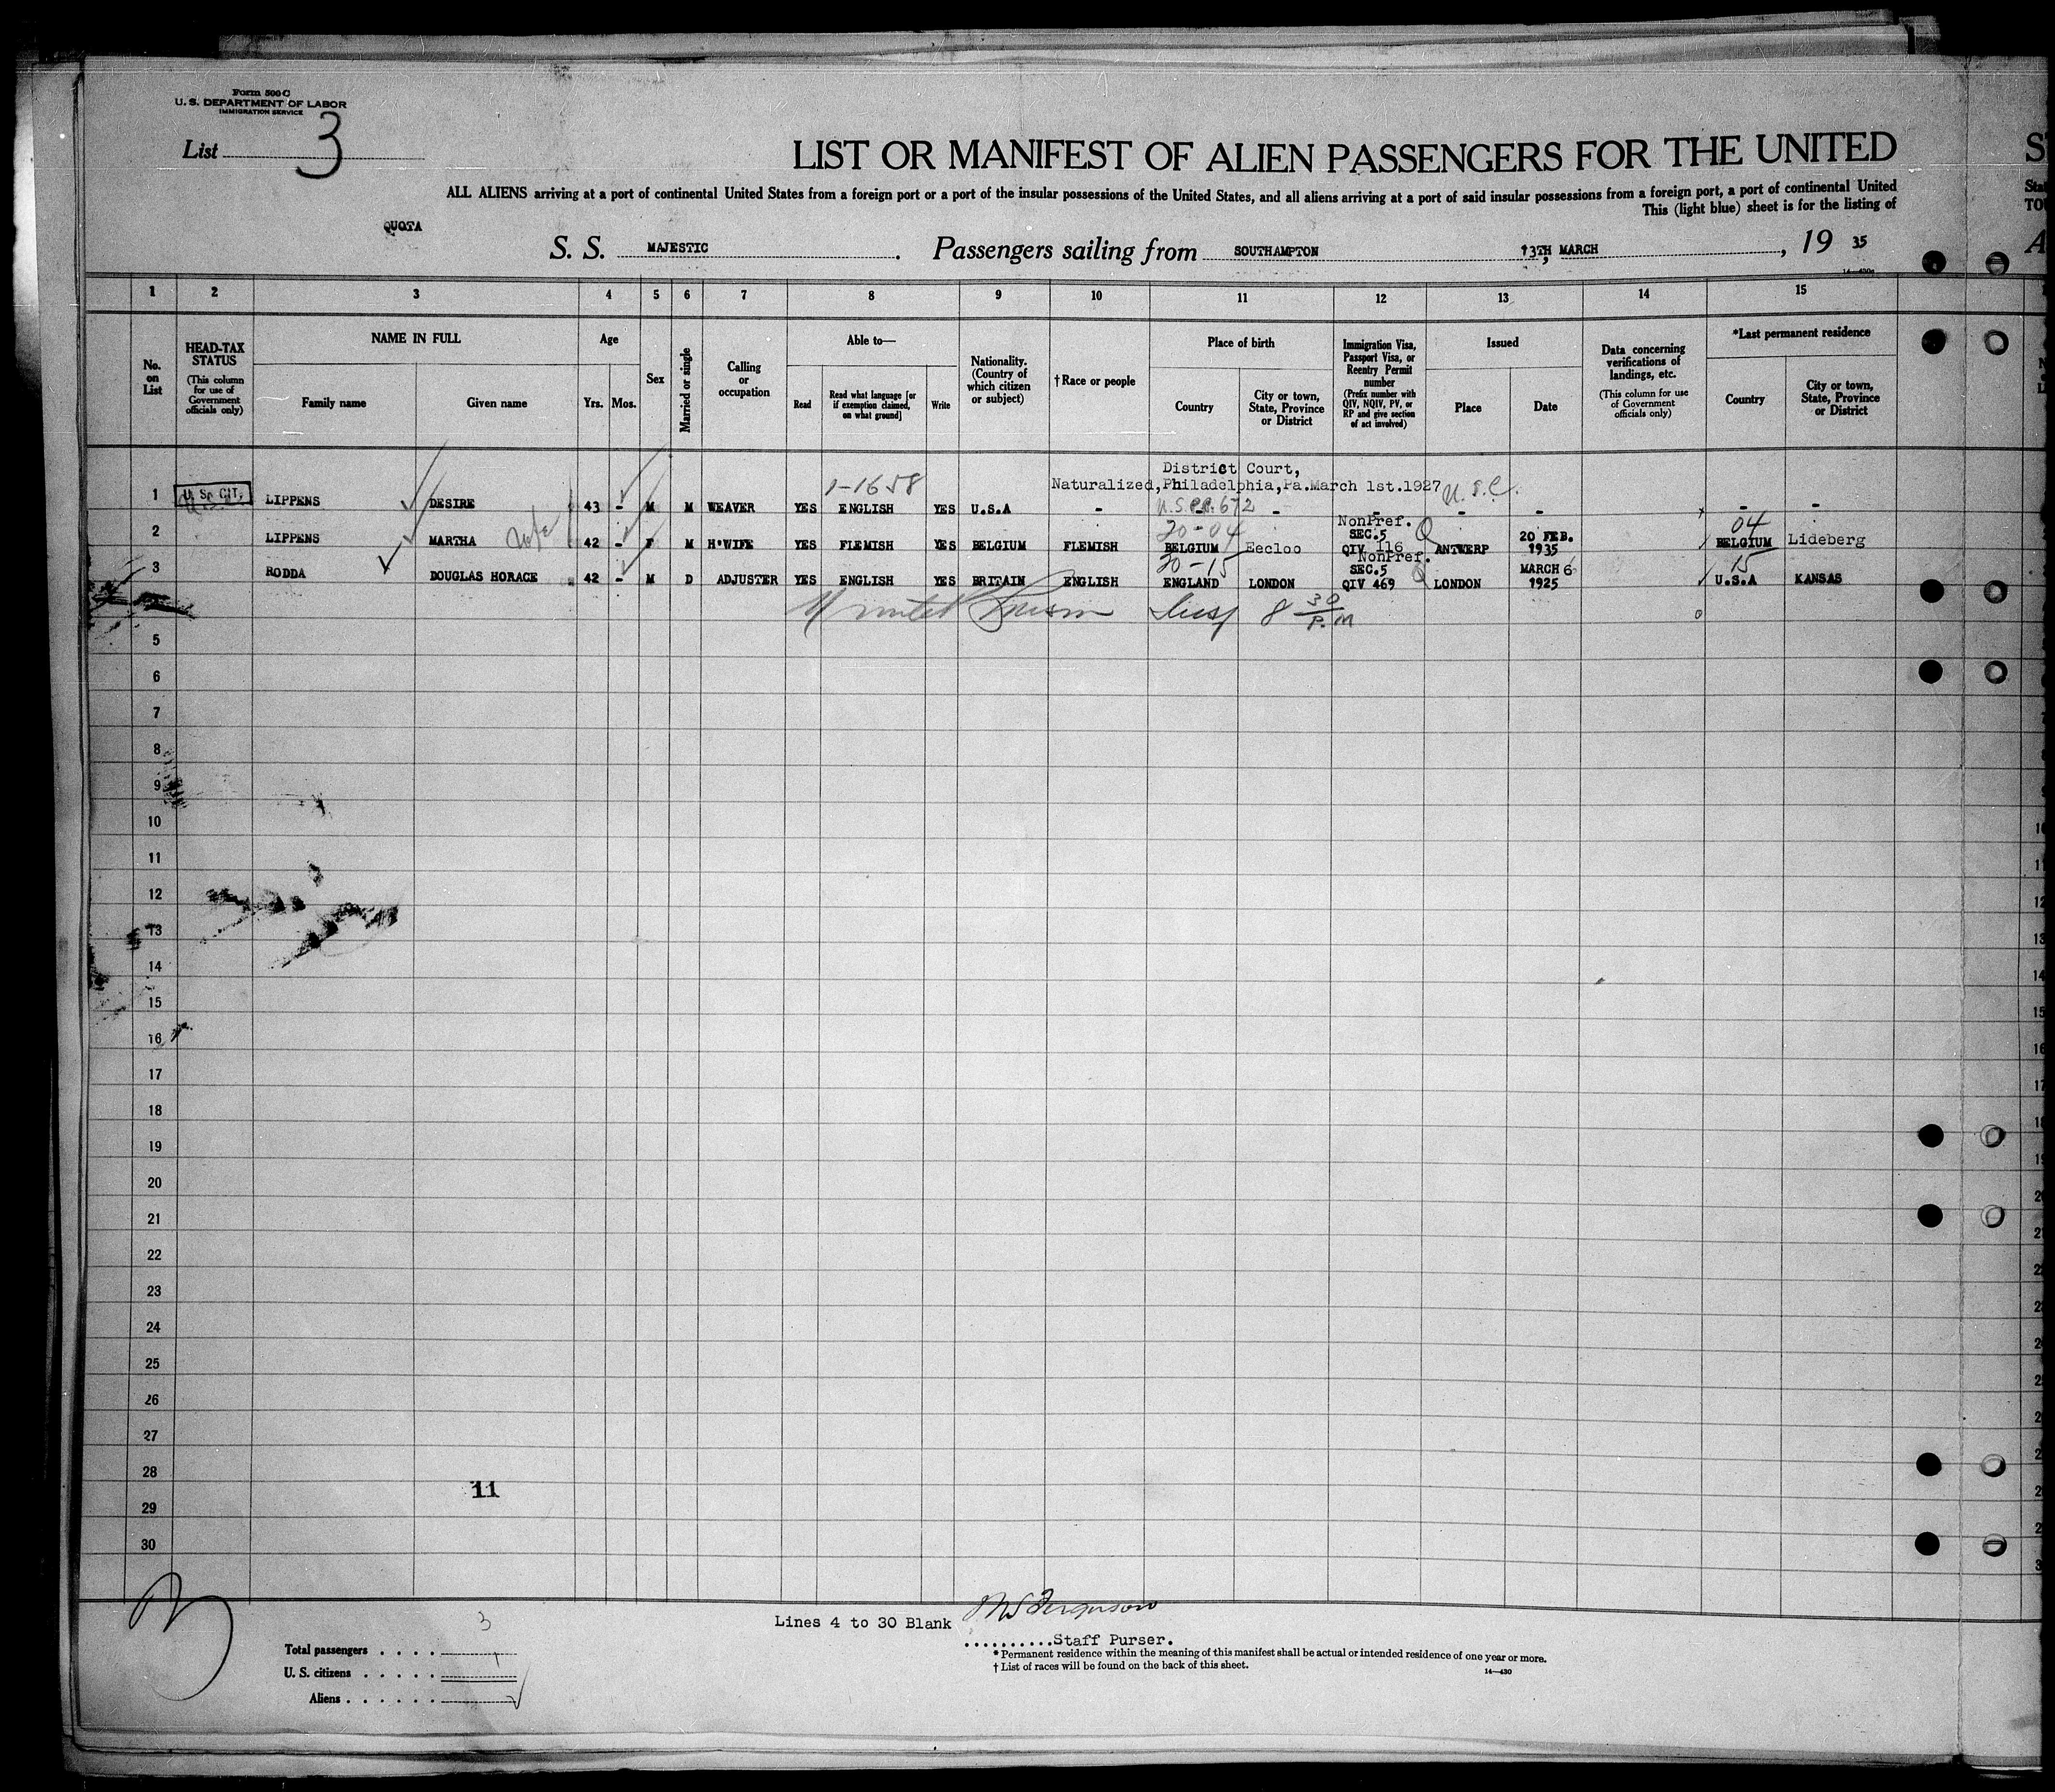 Form 500 C
U. S. DEPARTMENT OF LABOR
IMMIGRATION SERVICE
List 3
LIST OR MANIFEST OF ALIEN PASSENGERS FOR THE UNITED
ALL ALIENS arriving at a port of continental United States from a foreign port or a port of the insular possessions of the United States, and all aliens arriving at a port of said insular possessions from a foreign port, a port of continental United
This (light blue) sheet is for the listing of
QUOTA
S. S. MAJESTIC. Passengers sailing from SOUTHAMPTON 13TH, MARCH, 19 35
14—430a
1 2 3 4 5 6 7 8 9 10 11 12 13 14 15
No. on List
HEAD-TAX STATUS
(This column for use of Government officials only)
NAME IN FULL
Family name
Given name
Age
Yrs.
Mos.
Sex
Married or single
Calling or occupation
Able to—
Read
Read what language [or if exemption claimed, on what ground]
Write
Nationality. (Country of which citizen or subject)
† Race or people
Place of birth
Country
City or town, State, Province or District
Immigration Visa, Passport Visa, or Reentry Permit number
(Prefix number with QIV, NQIV, PV, or RP and give section of act involved)
Issued
Place
Date
Data concerning verifications of landings, etc.
(This column for use of Government officials only)
*Last permanent residence
Country
City or town, State, Province or District
District Court,
1-1658 Naturalized, Philadelphia, Pa. March 1st. 1927 U.S.C.
1 U. S. CIT. LIPPENS DESIRE 43 - M M WEAVER YES ENGLISH YES U.S.A - - - - - - - -
U.S.P.P. 672
20-04 NonPref. Q 04
2 LIPPENS MARTHA 42 - F M H'WIFE YES FLEMISH YES BELGIUM FLEMISH BELGIUM Eecloo SEC.5 QIV 116 ANTWERP 20 FEB. 1935 BELGIUM Lideberg
20-15 NonPref. Q 15
3 RODDA DOUGLAS HORACE 42 - M D ADJUSTER YES ENGLISH YES BRITAIN ENGLISH ENGLAND LONDON SEC.5 QIV 469 LONDON MARCH 6 1925 U.S.A KANSAS
8 30 P.M
5
6
7
8
9
10
11
12
13
14
15
16
17
18
19
20
21
22
23
24
25
26
27
28
11
29
30
Lines 4 to 30 Blank
..........Staff Purser.
Total passengers . . . . 3
U. S. citizens . . . . . 1
Aliens . . . . . .
* Permanent residence within the meaning of this manifest shall be actual or intended residence of one year or more.
† List of races will be found on the back of this sheet.
14—430